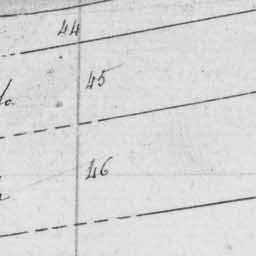 44
45
46